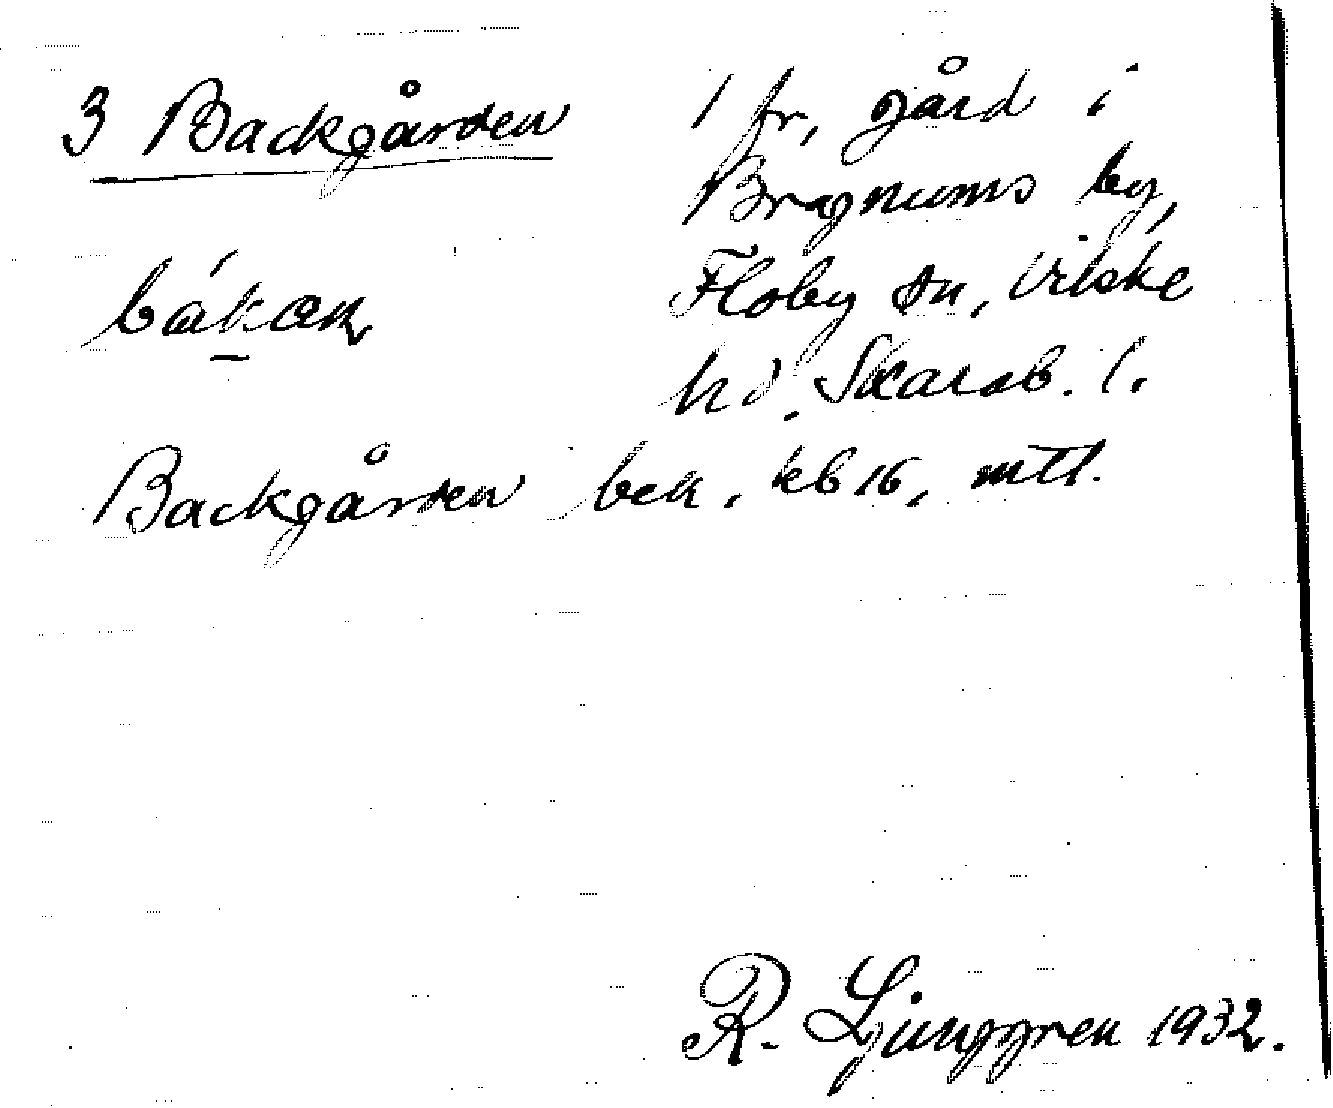 3 Backgården
1 fr. gård i
Bragnums by,
Floby sn, Vilske
hd. Skarab. l.
bákan
Backgården bek. kb 16, mtl.
R. Ljunggren 1932.